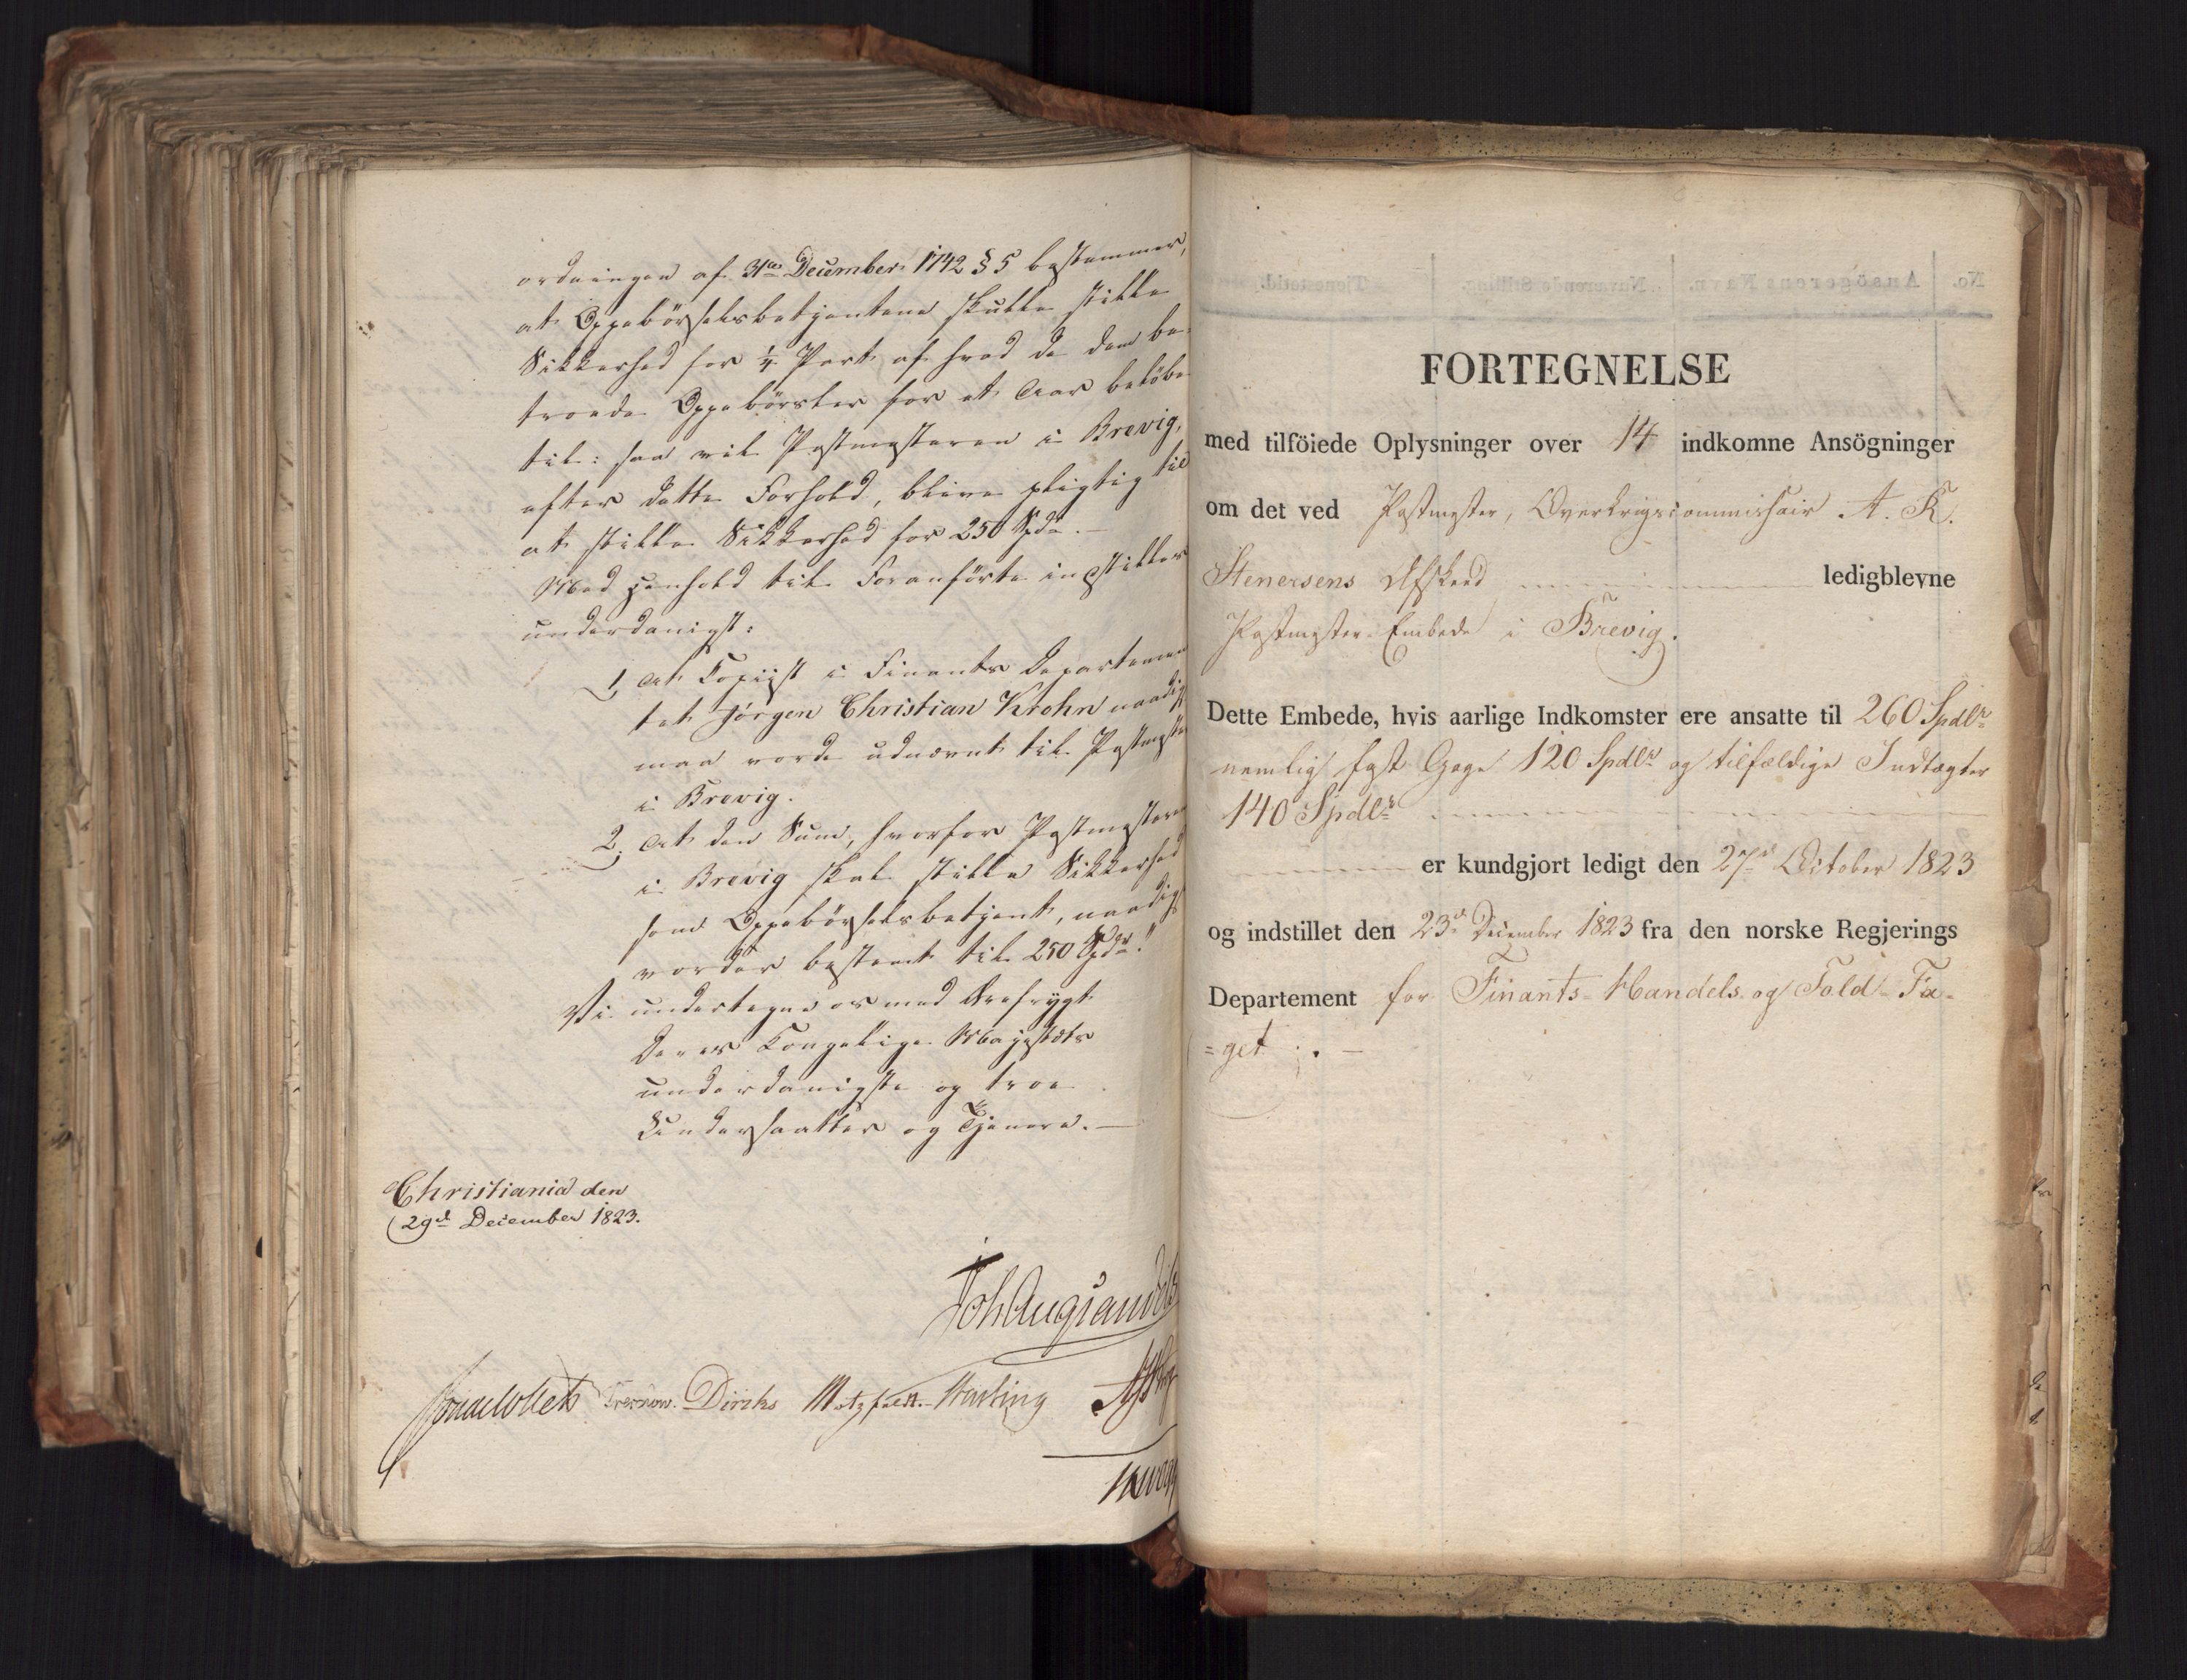 ordningen af 31te December 1742 § 5 bestemmer,
at Oppebørselsbetjentene skulle stille
Sikkerhed for 1/4 Part af hvad de dem be-
troede Oppebørsler for et Aar beløbe
til: saa vil Postmesteren i Brevig,
efter dette Forhold, blive pligtig til
at stille Sikkerhed for 250 Spd.
Med Henhold til Foranførte indstilles
underdanigst:
1, at Copiist i Finants Departemen
tet Jørgen Christian Krohn naadigst
maa vorde udnævnt til Postmester
i Brevig.
2, at den Sum, hvorfor Postmesteren
i Brevig skal stille Sikkerhed
som Oppebørselsbetjent, naadigst
vorder bestemt til 250 Spdr."
Vi undertegne os med Ærefrygt
Deres Kongelige Majestæts
underdanigste og troe
Undersaatter og Tjenere.
Christiania den
29de December 1823.
Joh Aug Sandels
Jonas Collett Treschow. Diriks Motzfeldt.
FORTEGNELSE
med tilföiede Oplysninger over 14 indkomne Ansögninger
om det ved Postmester, Overkrigscommissair A. K.
Stenersens Afskeed ledigblevne
Postmester-Embede i Brevig.
Dette Embede, hvis aarlige Indkomster ere ansatte til 260 Spdlr
nemlig fast Gage 120 Spdlr og tilfældige Indtægter
140 Spdlr
er kundgjort ledigt den 27de October 1823
og indstillet den 23de December 1823 fra den norske Regjerings
Departement for Finants- Handels- og Told-Fa-
=get.